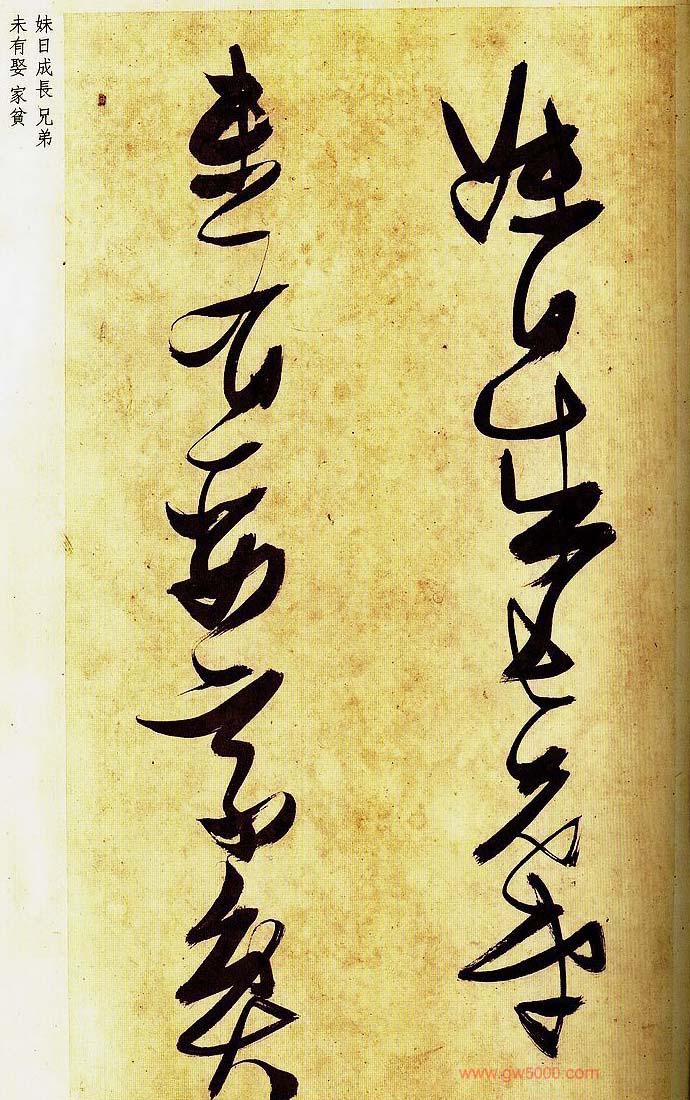 妹日成長兄弟
未有娶家貧
妹日成長 兄弟
未有娶 家貧
www.gw5000.com